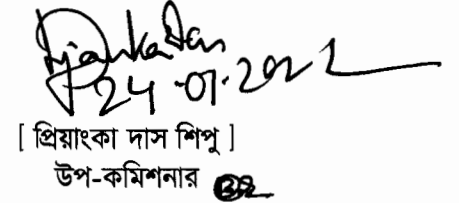 24-01-2022
[ প্রিয়াংকা দাস শিপু ]
উপ-কমিশনার